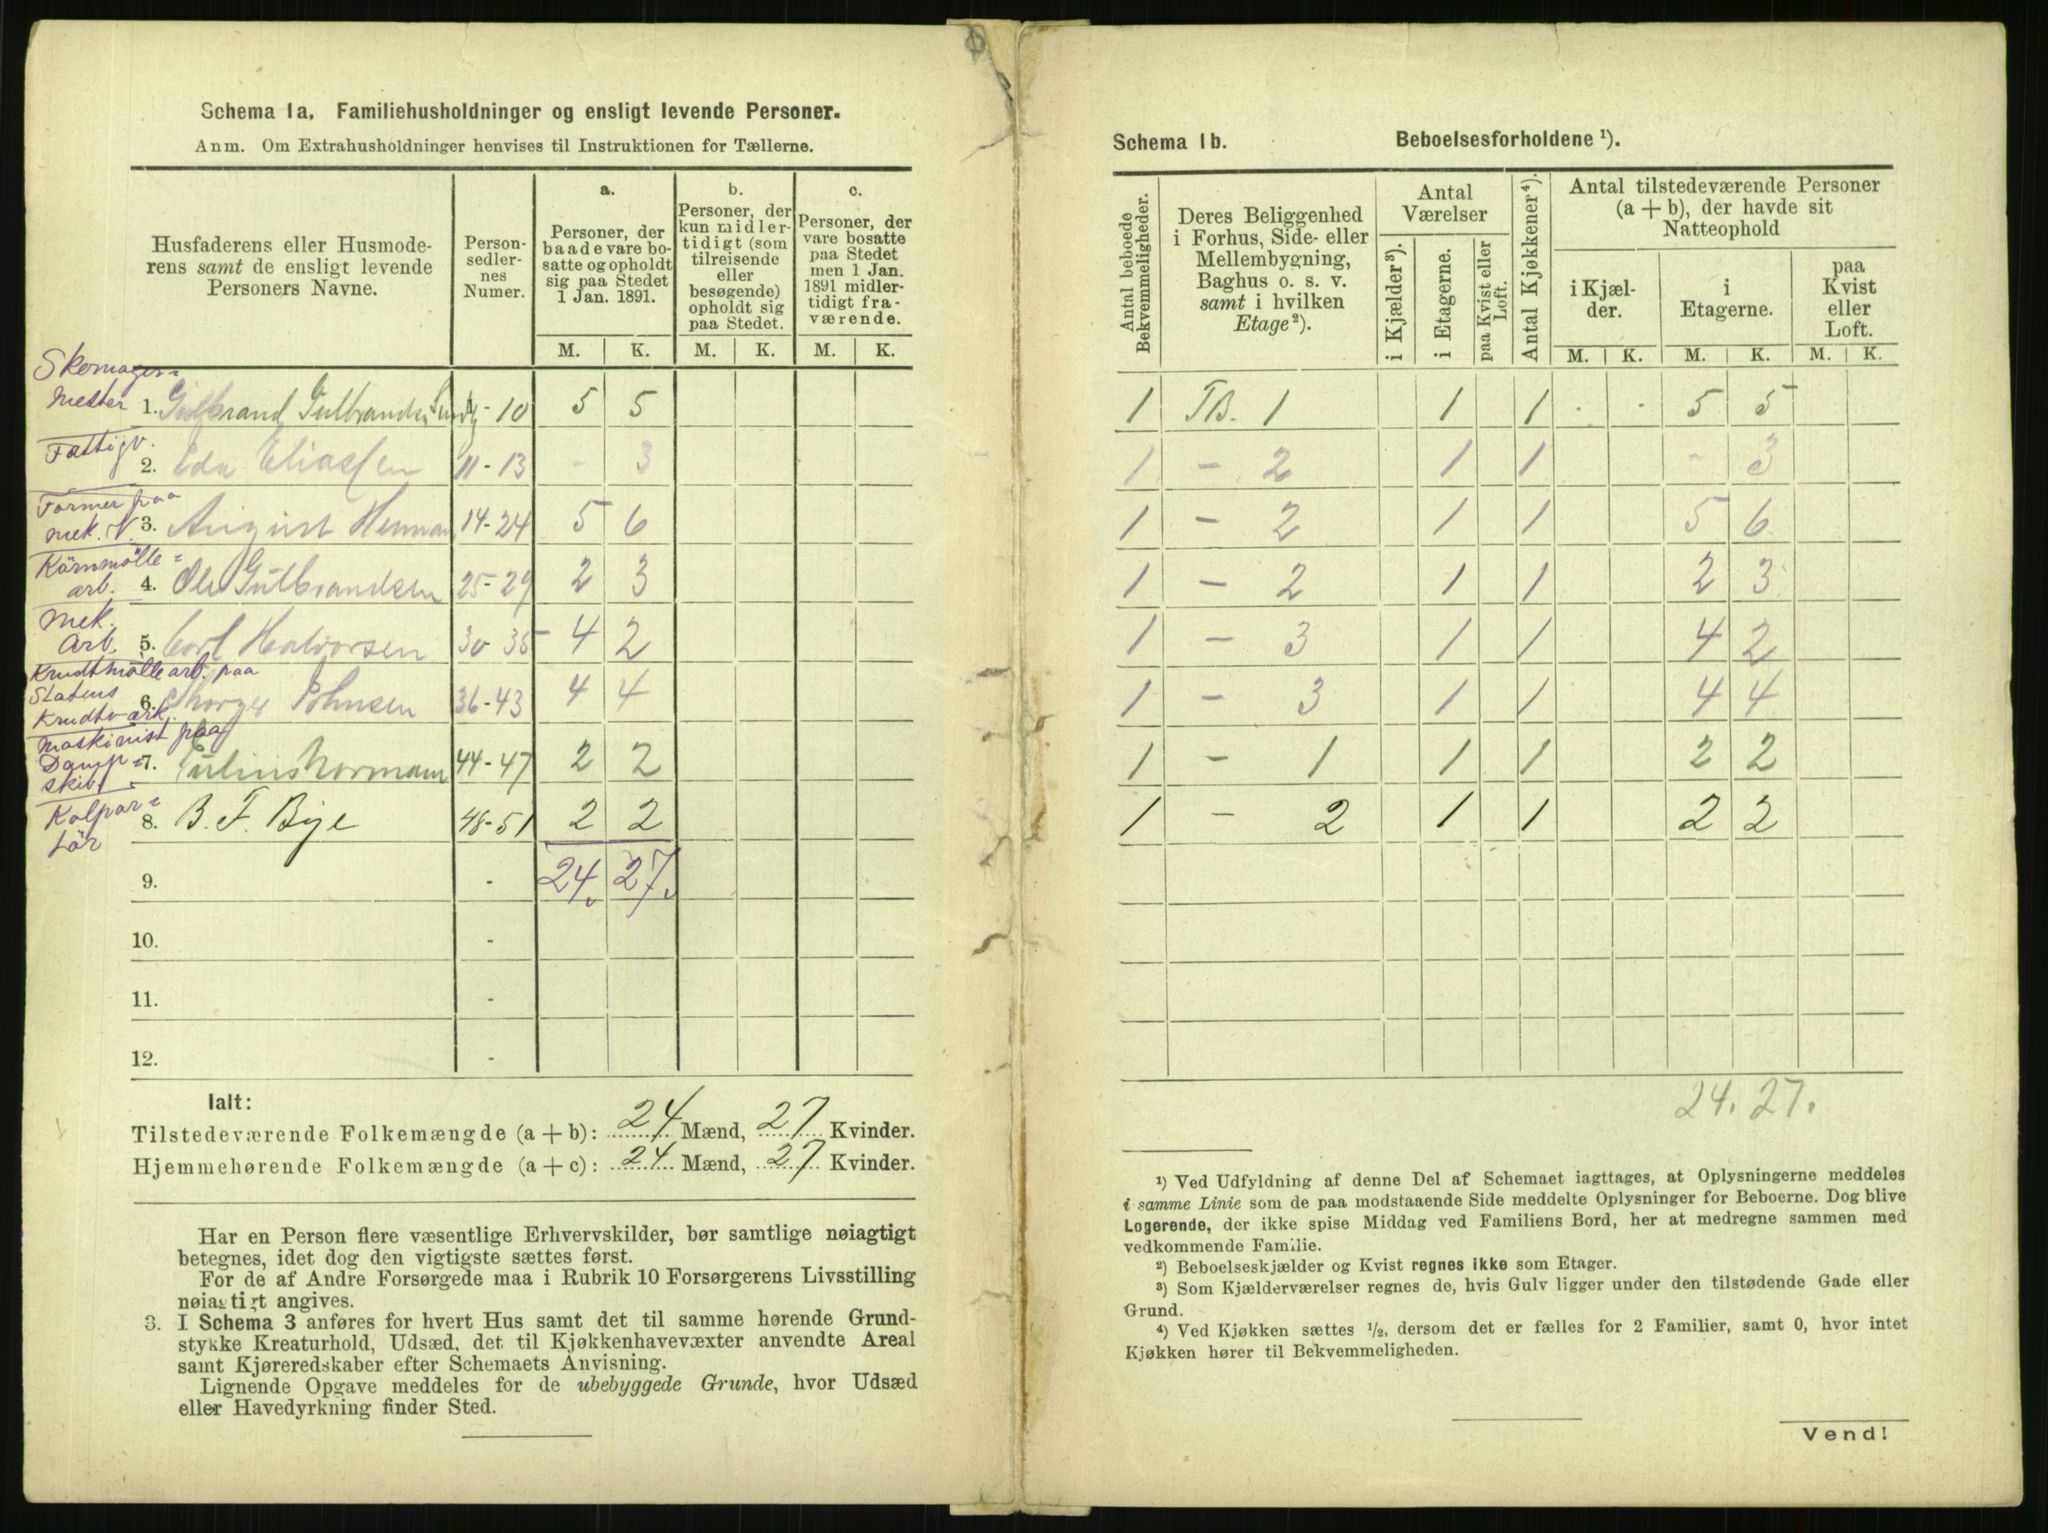 Schema 1a. Familiehusholdninger og ensligt levende Personer.
Anm. Om Extrahusholdninger henvises til Instruktionen for Tællerne.
Husfaderens eller Husmode-
rens samt de ensligt levende
Personers Navne.
Person-
sedler-
nes
Numer.
a.
Personer, der
baade vare bo-
satte og opholdt
sig paa Stedet
1 Jan. 1891.
b.
Personer, der
kun midler-
tidigt (som
tilreisende
eller
besøgende)
opholdt sig
paa Stedet.
c.
Personer, der
vare bosatte
paa Stedet
men 1 Jan.
1891 midler-
tidigt fra-
værende.
M. K. M. K. M. K.
Skomager=
mester 1. Gulbrand Gulbrandsen 10 5 5
Fattigv.
2. Eda Eliassen 11-13 - 3
Former paa
mek. V. 3. August Herman 14-24 5 6
Körnmölle=
arb. 4. Ole Gulbrandsen 25-29 2 3
Mek.
Arb. 5. Carl Halvorsen 30-35 4 2
Krudtmölle arb. paa
Statens
Krudtværk. 6. Johnsen 36-43 4 4
Maskinist paa
Damp=
skib. 7. Julius Normann 44-47 2 2
Kolpor=
tör 8. B. F. Bye 48-51 2 2
9. - 24. 27.
10. -
11. -
12. -
Ialt:
Tilstedeværende Folkemængde (a + b): 24 Mænd, 27 Kvinder.
Hjemmehørende Folkemængde (a + c): 24 Mænd, 27 Kvinder.
Har en Person flere væsentlige Erhvervskilder, bør samtlige nøiagtigt
betegnes, idet dog den vigtigste sættes først.
For de af Andre Forsørgede maa i Rubrik 10 Forsørgerens Livsstilling
nøiagtigt angives.
3. I Schema 3 anføres for hvert Hus samt det til samme hørende Grund-
stykke Kreaturhold, Udsæd, det til Kjøkkenhavevæxter anvendte Areal
samt Kjøreredskaber efter Schemaets Anvisning.
Lignende Opgave meddeles for de ubebyggede Grunde, hvor Udsæd
eller Havedyrkning finder Sted.
Schema 1b. Beboelsesforholdene ¹).
Antal beboede
Bekvemmeligheder.
Deres Beliggenhed
i Forhus, Side- eller
Mellembygning,
Baghus o. s. v.
samt i hvilken
Etage²).
Antal
Værelser
i Kjælder³).
i Etagerne.
paa Kvist eller
Loft.
Antal Kjøkkener⁴).
Antal tilstedeværende Personer
(a + b), der havde sit
Natteophold
i Kjæl-
der.
i
Etagerne.
paa
Kvist
eller
Loft.
M. K. M. K. M. K.
1 FB. 1 1 1 . . 5 5
1 - 2 1 1 - 3
1 - 2 1 1 5 6
1 - 2 1 1 2 3
1 - 3 1 1 4 2
1 - 3 1 1 4 4
1 - 1 1 1 2 2
1 - 2 1 1 2 2
24. 27.
¹) Ved Udfyldning af denne Del af Schemaet iagttages, at Oplysningerne meddeles
i samme Linie som de paa modstaaende Side meddelte Oplysninger for Beboerne. Dog blive
Logerende, der ikke spise Middag ved Familiens Bord, her at medregne sammen med
vedkommende Familie.
²) Beboelseskjælder og Kvist regnes ikke som Etager.
³) Som Kjælderværelser regnes de, hvis Gulv ligger under den tilstødende Gade eller
Grund.
⁴) Ved Kjøkken sættes ½, dersom det er fælles for 2 Familier, samt 0, hvor intet
Kjøkken hører til Bekvemmeligheden.
Vend!